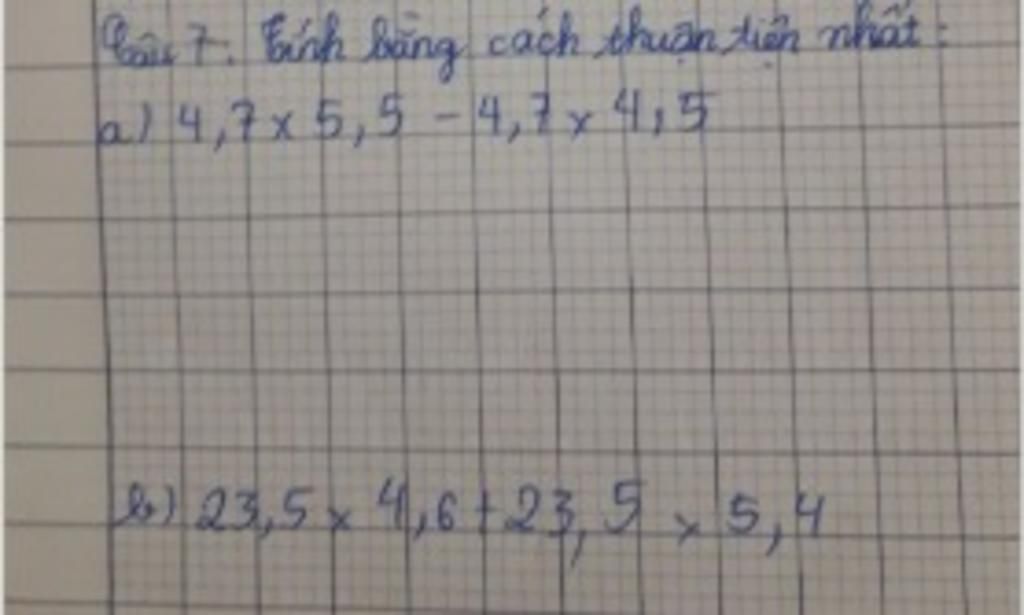 Câu 7. Tính bằng cách thuận tiện nhất:
a) 4,7 x 5,5 - 4,7 x 4,5
b) 23,5 x 4,6 + 23,5 x 5,4